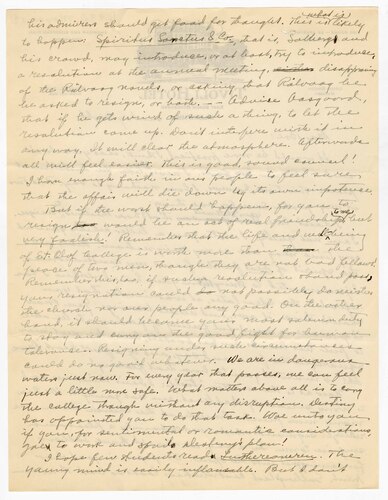 (what is)
his admirers should get food for thought. This is likely
to happen: Spiritus Sanctus & Co, that is, and
his crowd, may introduce, or at least, try to introduce,
a resolution at the annual meeting, disapproving
of the Rölvaag novels, or asking that Rölvaag be
be asked to resign, or both. — Advise Aasgaard,
that if he gets wind of such a thing, to let the
resolution come up. Don't interfere with it in
any way. It will clear the atmosphere. Afterwards
all will feel easier. This is good, sound counsel!
I have enough faith in our people to feel sure
that the affair will die down by its own impotence.
But if the worst should happen, for you to
resign would be an act of real friendship to me, but
very foolish. Remember that the life and well being
of St. Olaf College is worth more than the
peace of two men, though they are not bad fellows.
Remember this, too: if such a resolution should pass,
your resignation could not possibly do neither
the church nor our people any good. On the other
hand, it should become your most solemn duty
to stay and carry on the good fight for human
tolerance. Resigning under such circumstances
could do no good whatever. We are in dangerous
waters just now. For every year that passes, we can feel
just a little more safe. What matters above all is to carry
the college through without any disruption. Destiny
has appointed you to do that task. Woe unto you
if you, for sentimental or romantic considerations,
go to work and spoil Destiny's plan!
I hope few students read Lutheraneren. The
young mind is easily inflamable. But I don't